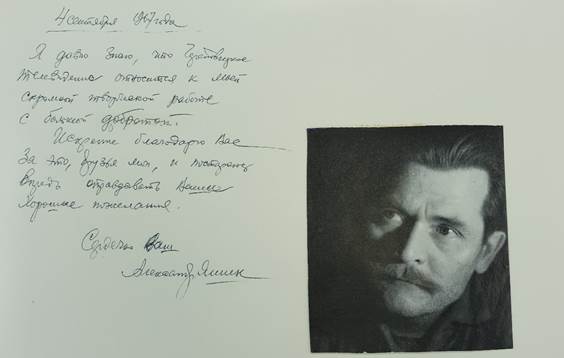 4 сентября 1967 года
Я давно знаю, что
телевидение относится к моей
скромной творческой работе
с большой добротой.
Искренне благодарю Вас
за это, друзья мои, и постараюсь
впредь оправдывать Ваши
хорошие пожелания.
Сердечно Ваш
Александр Яшин